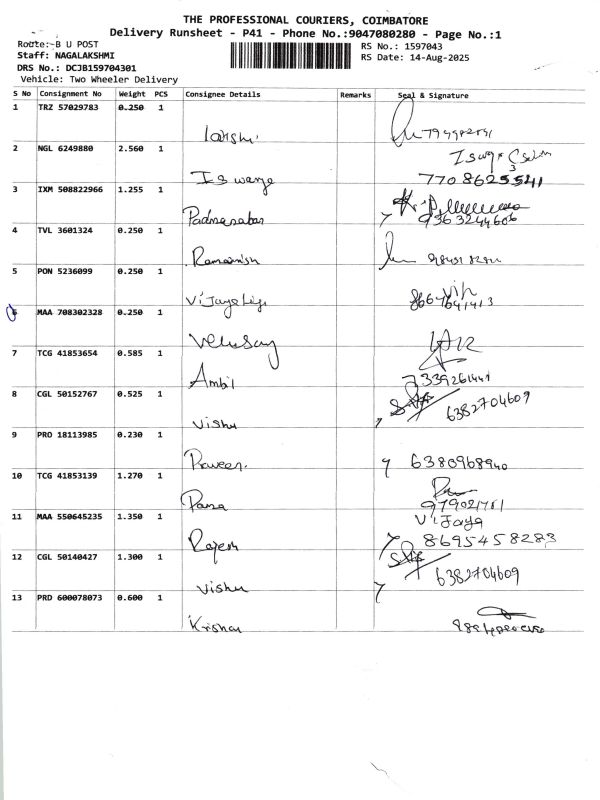 THE PROFESSIONAL COURIERS, COIMBATORE
Delivery Runsheet - P41 - Phone No.:9047080280 - Page No.:1
Route:-B U POST RS No.: 1597043
Staff: NAGALAKSHMI RS Date: 14-Aug-2025
DRS No.: DCJB159704301
Vehicle: Two Wheeler Delivery
S No Consignment No Weight PCS Consignee Details Remarks Seal & Signature
1 TRZ 57029783 0.250 1
2 NGL 6249880 2.560 1
Iswarya 7708625541
3 IXM 508822966 1.255 1
9363244606
4 TVL 3601324 0.250 1
5 PON 5236099 0.250 1
6 MAA 708302328 0.250 1
7 TCG 41853654 0.585 1
Ambil
8 CGL 50152767 0.525 1
6382704609
Vishu
9 PRO 18113985 0.230 1
Praveen. 6380968940
10 TCG 41853139 1.270 1
11 MAA 550645235 1.350 1
Vijaya
Rajesh 8695458283
12 CGL 50140427 1.300 1
6382704609
Vishu
13 PRD 600078073 0.600 1
Krishan